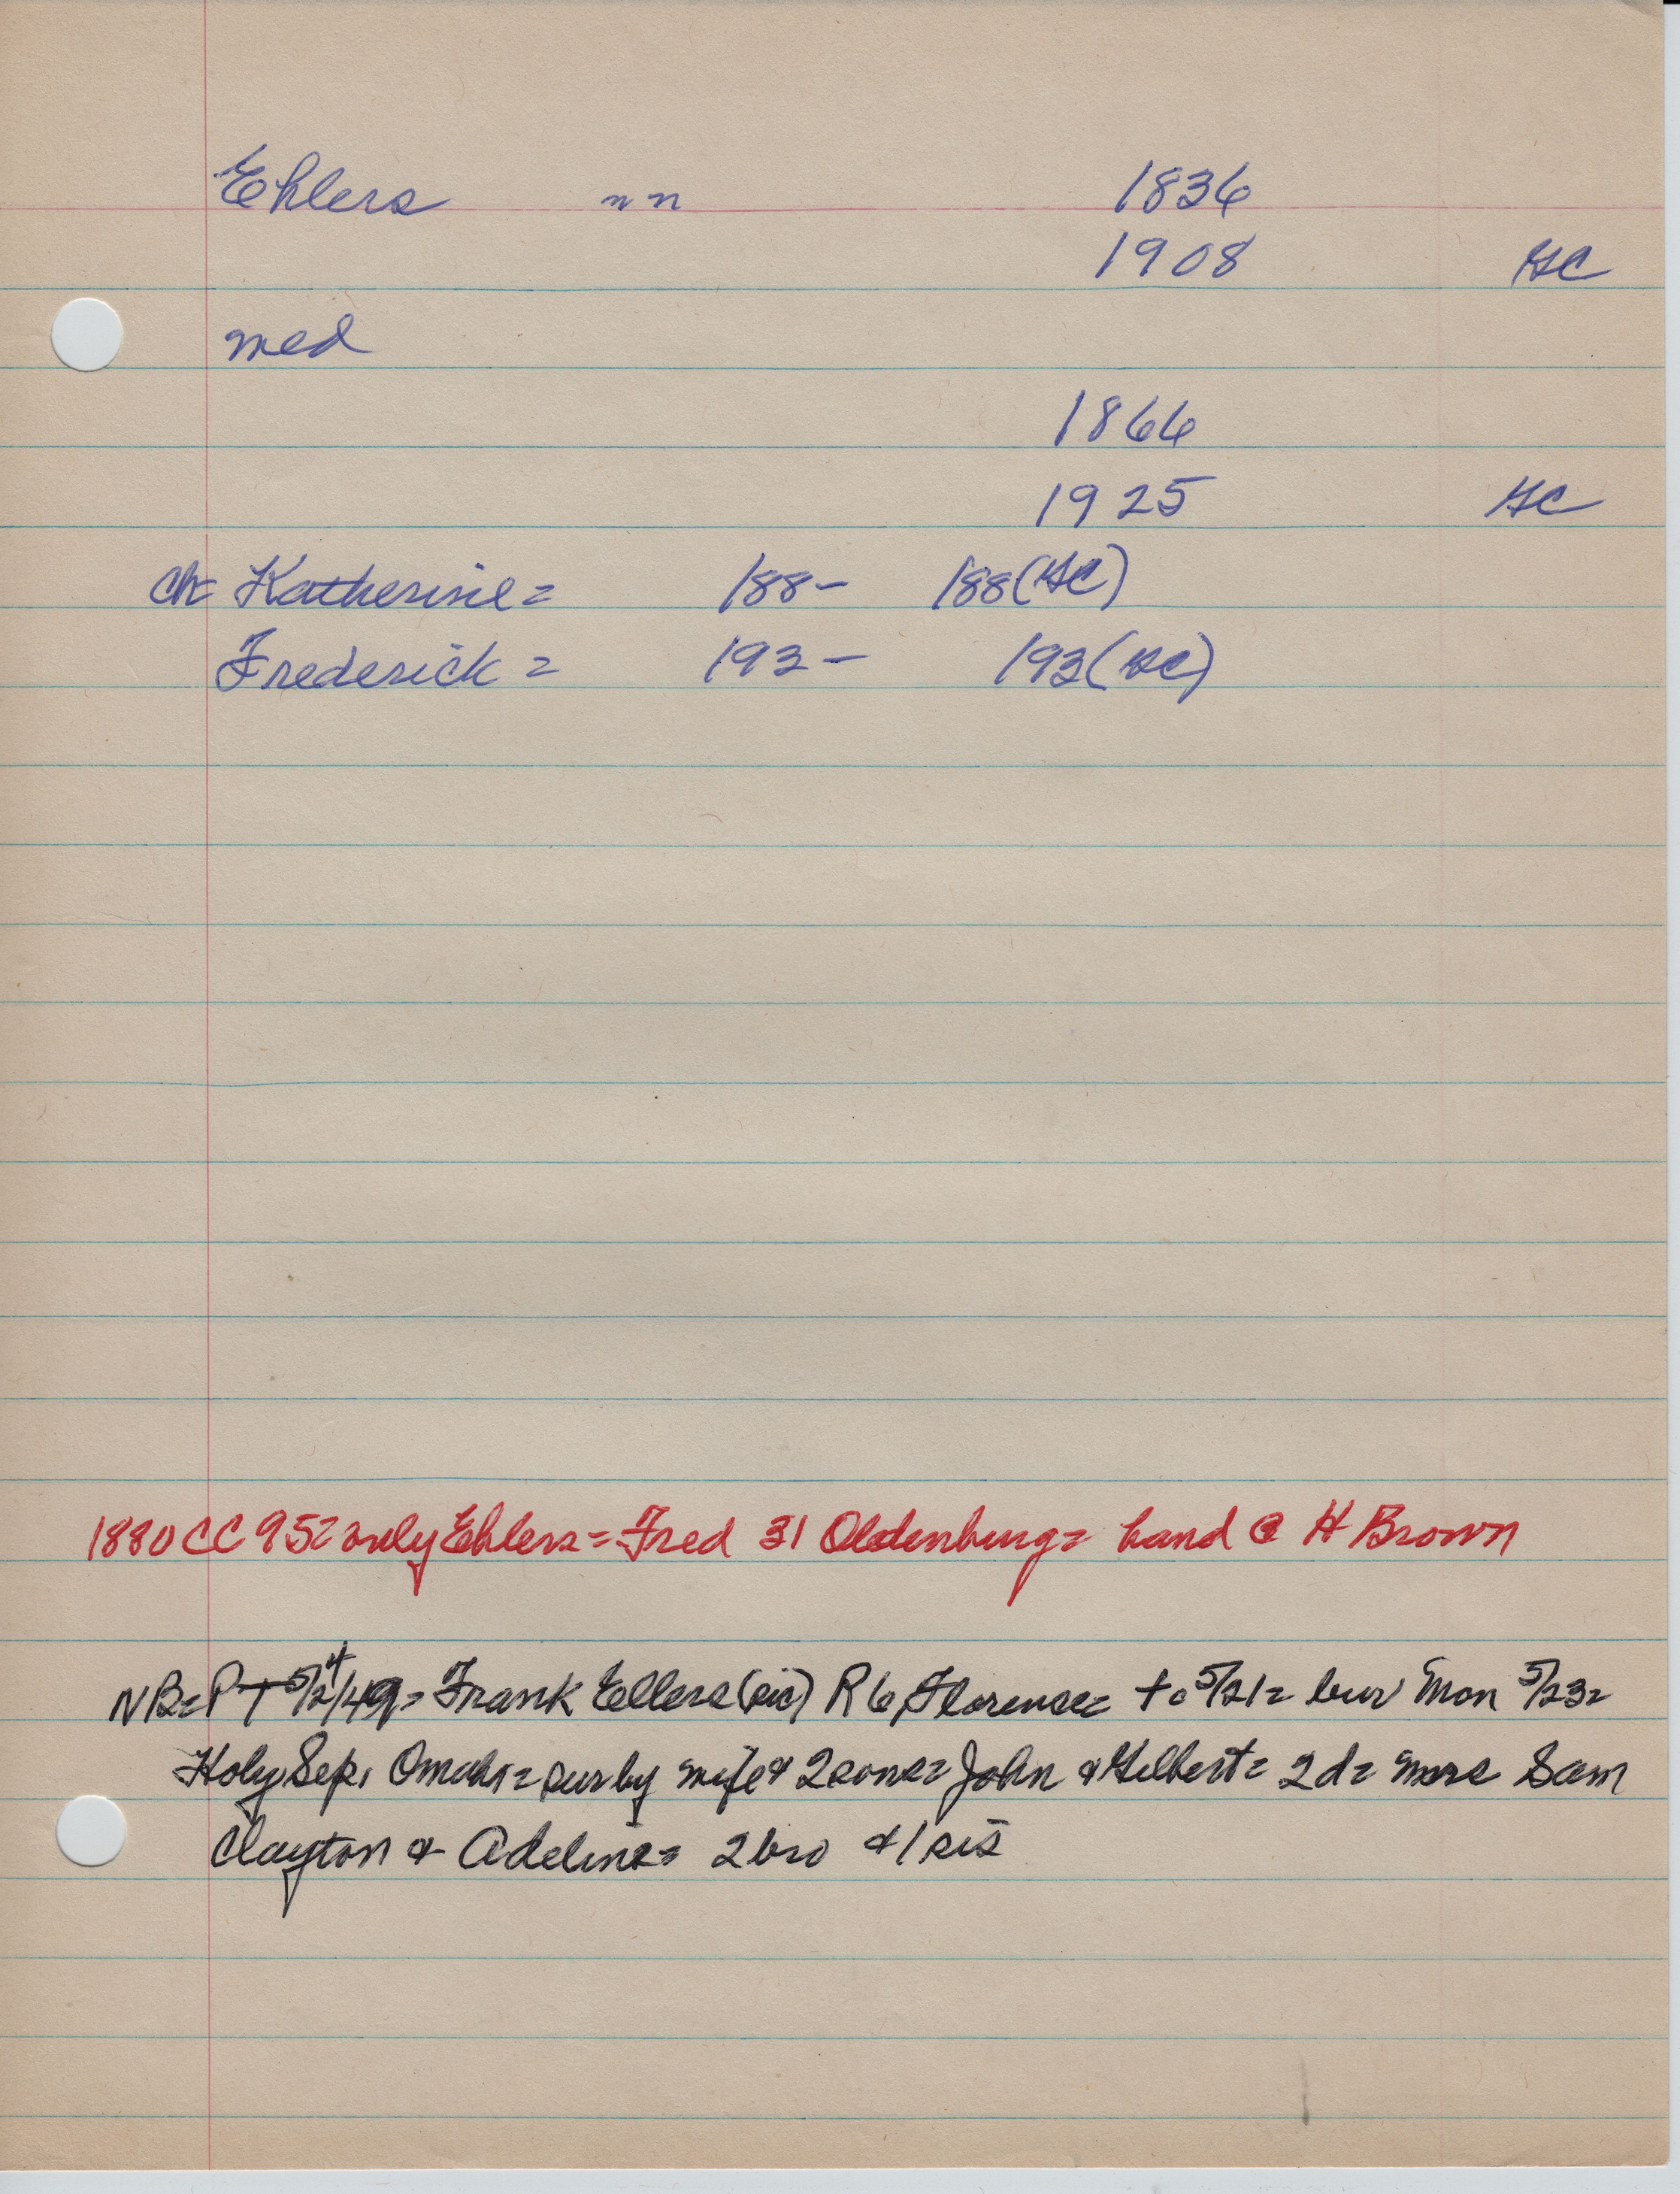 Ehlers nn 1836
1908 GC
med
1866
1925 GC
ch Katherine = 188- 188(GC)
Frederick = 193- 193(GC)
1880 CC 95= only Ehlers = Fred 31 Oldenburg = hand @ H Brown
NB = PT 5/24/49 = Frank Ellers (sic) R 6, Florence = to 5/21 = bur Mon 5/23 =
Holy Sep, Omaha = sur by wife & 2 sons = John & Gilbert = 2 d = Mrs Sam
Clayton & Adeline = 2 bro & 1 sis